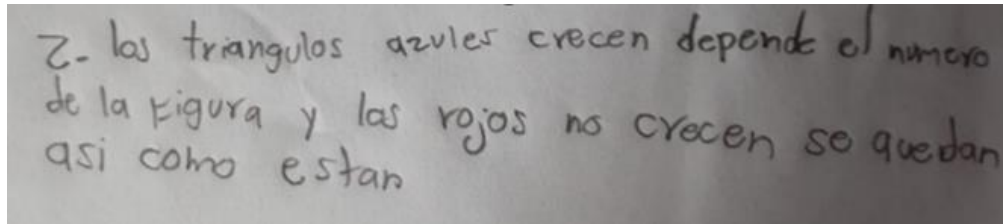 2- los triangulos azules crecen depende el numero
de la Figura y las rojos no crecen se quedan
asi como estan